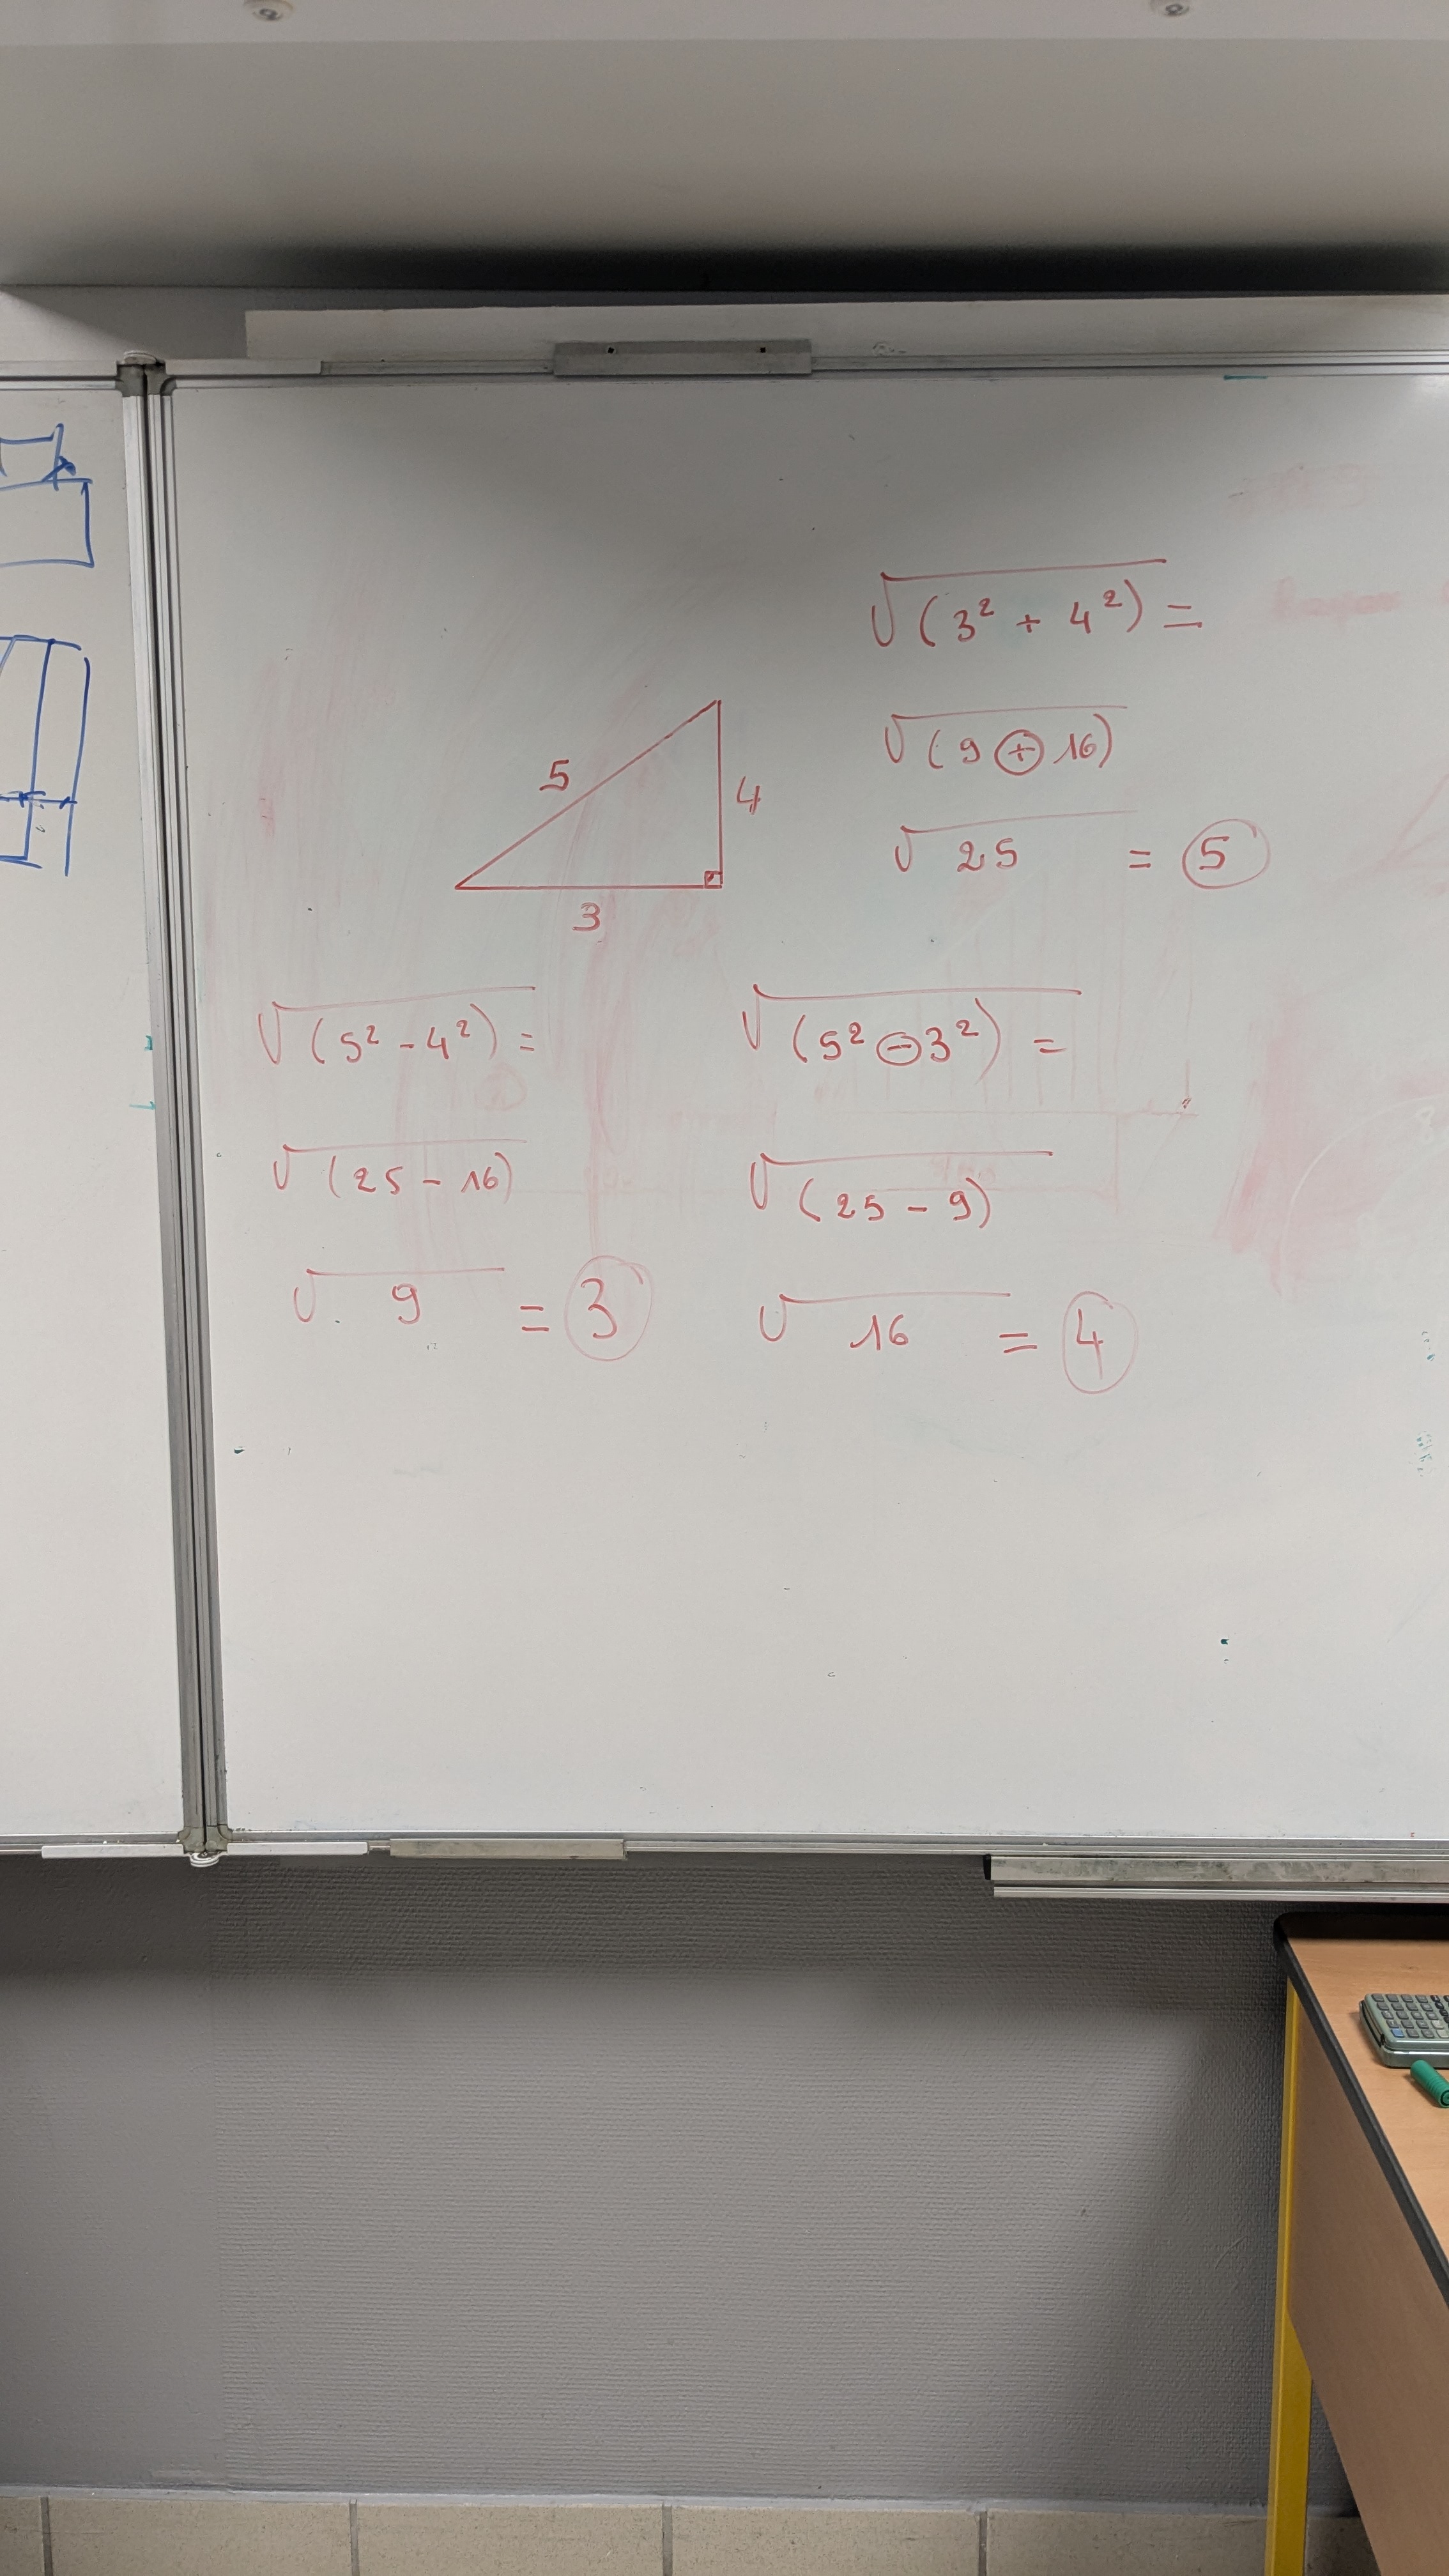 √(3² + 4²) =
√(9 + 16)
5
4
√25 = 5
3
√(5² - 4²) =
√(25 - 16)
√9 = 3
√(5² - 3²) =
√(25 - 9)
√16 = 4